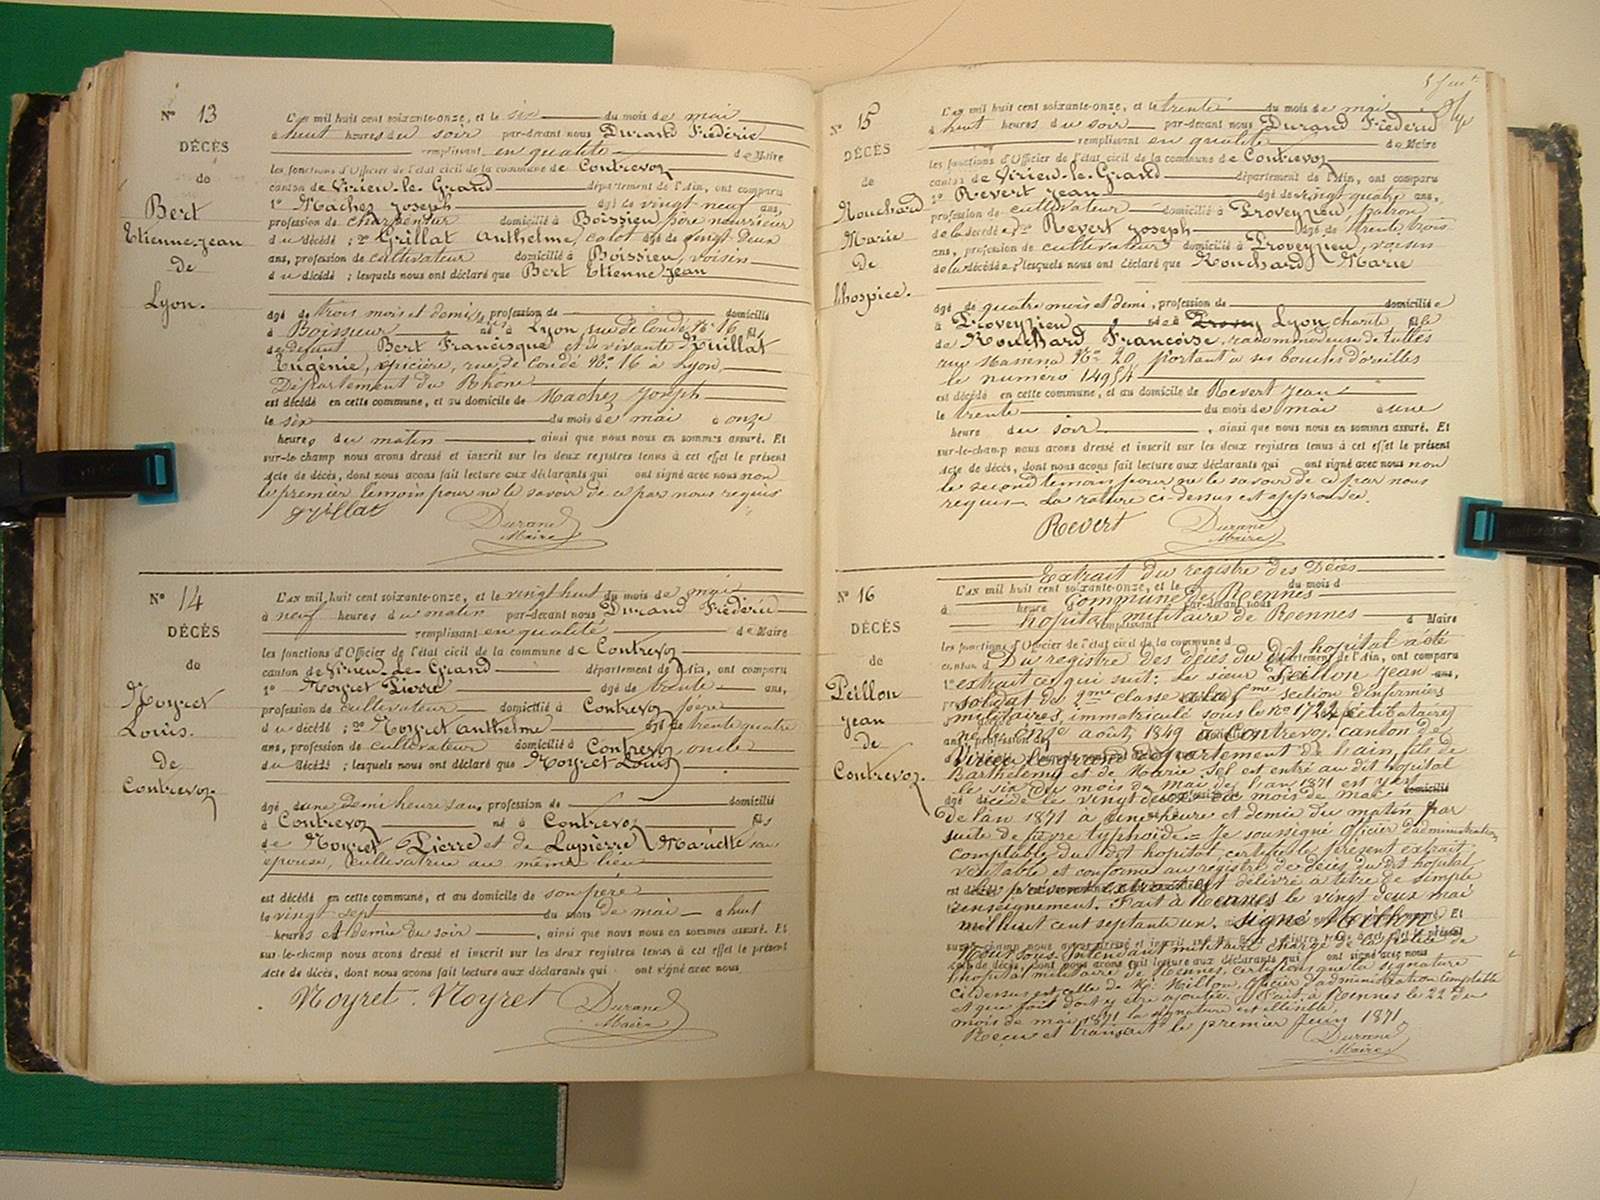 N° 13
DÉCÈS
de
Bert
Etienne Jean
de
Lyon.
L'an mil huit cent soixante-onze, et le six du mois de mai
à huit heures du soir par-devant nous Durand Frédéric
remplissant en qualité de Maire
les fonctions d'Officier de l'état civil de la commune de Contrevoz
canton de Virieu-le-Grand département de l'Ain, ont comparu
1° Machez Joseph âgé de vingt neuf ans,
profession de charpentier domicilié à Boissieu, père nourricier
du décédé ; 2° Grillat Anthelme, âgé de vingt deux
ans, profession de cultivateur domicilié à Boissieu, voisin
du décédé ; lesquels nous ont déclaré que Bert Etienne Jean
âgé de trois mois et demi, profession de domicilié
à Boissieu né à Lyon, rue de Condé N° 16 fils
de défunt Bert Francisque et de vivante Ruillat
Eugénie, épicière, rue de Condé N° 16 à Lyon
Département du Rhône
est décédé en cette commune, et au domicile de Machez Joseph
le six du mois de mai à onze
heures du matin, ainsi que nous nous en sommes assuré. Et
sur-le-champ nous avons dressé et inscrit sur les deux registres tenus à cet effet le présent
Acte de décès, dont nous avons fait lecture aux déclarants qui ont signé avec nous non
le premier témoin pour ne le savoir de ce par nous requis
Grillat Durand
Maire
N° 14
DÉCÈS
de
Moyret
Louis.
De
Contrevoz
L'an mil huit cent soixante-onze, et le vingt huit du mois de mai
à neuf heures du matin par-devant nous Durand Frédéric
remplissant en qualité de Maire
les fonctions d'Officier de l'état civil de la commune de Contrevoz
canton de Virieu-le-Grand département de l'Ain, ont comparu
1° Moyret Pierre âgé de trente ans,
profession de cultivateur domicilié à Contrevoz père
du décédé ; 2° Moyret Anthelme âgé de trente quatre
ans, profession de cultivateur domicilié à Contrevoz, oncle
du décédé ; lesquels nous ont déclaré que Moyret Louis
âgé d'une demi heure sans profession de domicilié
à Contrevoz né à Contrevoz fils
de Moyret Pierre et de Lapierre Mariette sa
épouse, cultivatrice au même lieu
est décédé en cette commune, et au domicile de son père
le vingt sept du mois de mai à huit
heures et demie du soir, ainsi que nous nous en sommes assuré. Et
sur-le-champ nous avons dressé et inscrit sur les deux registres tenus à cet effet le présent
Acte de décès, dont nous avons fait lecture aux déclarants qui ont signé avec nous
Moyret. Moyret Durand
Maire
N° 15
DÉCÈS
de
Rouchard
Marie
De
l'hospice.
L'an mil huit cent soixante-onze, et le trente du mois de mai
à huit heures du soir par-devant nous Durand Frédéric
remplissant en qualité de Maire
les fonctions d'Officier de l'état civil de la commune de Contrevoz
canton de Virieu-le-Grand département de l'Ain, ont comparu
1° Revert Jean âgé de vingt quatre ans,
profession de cultivateur domicilié à Proveyzieu, patron
de la décédée ; 2° Revert Joseph âgé de trente trois
ans, profession de cultivateur domicilié à Proveyzieu, voisin
de la décédée ; lesquels nous ont déclaré que Rouchard Marie
âgé de quatre mois et demi, profession de domicilié
à Proveyzieu née à Lyon charité fille
de Rouchard Françoise, racommodeuse de tulles
rue Masséna N° 20, portant à ses boucles d'oreilles
le numéro 14954
est décédé en cette commune, et au domicile de Revert Jean
le trente du mois de mai à une
heure du soir, ainsi que nous nous en sommes assuré. Et
sur-le-champ nous avons dressé et inscrit sur les deux registres tenus à cet effet le présent
Acte de décès, dont nous avons fait lecture aux déclarants qui ont signé avec nous non
le second témoin pour ne le savoir de ce par nous
requis. La rature ci-dessus est approuvée.
Revert Durand
Maire
N° 16
DÉCÈS
de
Peillon
Jean
de
Contrevoz.
Extrait du registre des Décès
L'an mil huit cent soixante-onze, et le du mois d
Commune de Rennes
hopital militaire de Rennes
Du registre des décès du dit hopital a été
extrait ce qui suit: Le sieur Peillon Jean
soldat de 2me classe à la section d'infirmiers
militaires, immatriculé sous le no célibataire
né le onze août 1849 à Contrevoz, canton de
Virieu le grand département de l'ain, fils de
Barthélemy et de Marie. Il est entré au dit hopital
le six du mois de mai de l'an 1871 et y est
décédé le vingt deux du mois de mai
de l'an 1871 à une heure et demie du matin par
suite de fièvre typhoïde. Je soussigné officier d'administration
comptable du dit hopital, certifie le présent extrait
véritable et conforme au registre de décès du dit hopital
le présent extrait est délivré à titre de simple
renseignement. Fait à Rennes le vingt deux mai
mil huit cent septante un. Signé Millon
Nous sous intendant militaire chargé de la police de
l'hopital militaire de Rennes, certifions que la signature
ci dessus est celle de Mr Millon, officier d'administration comptable
et que foit doit y être ajoutée. Fait à Rennes le 22 du
mois de mai 1871 la signature est illisible.
Reçu et transcrit le premier Juin 1871.
Durand
Maire